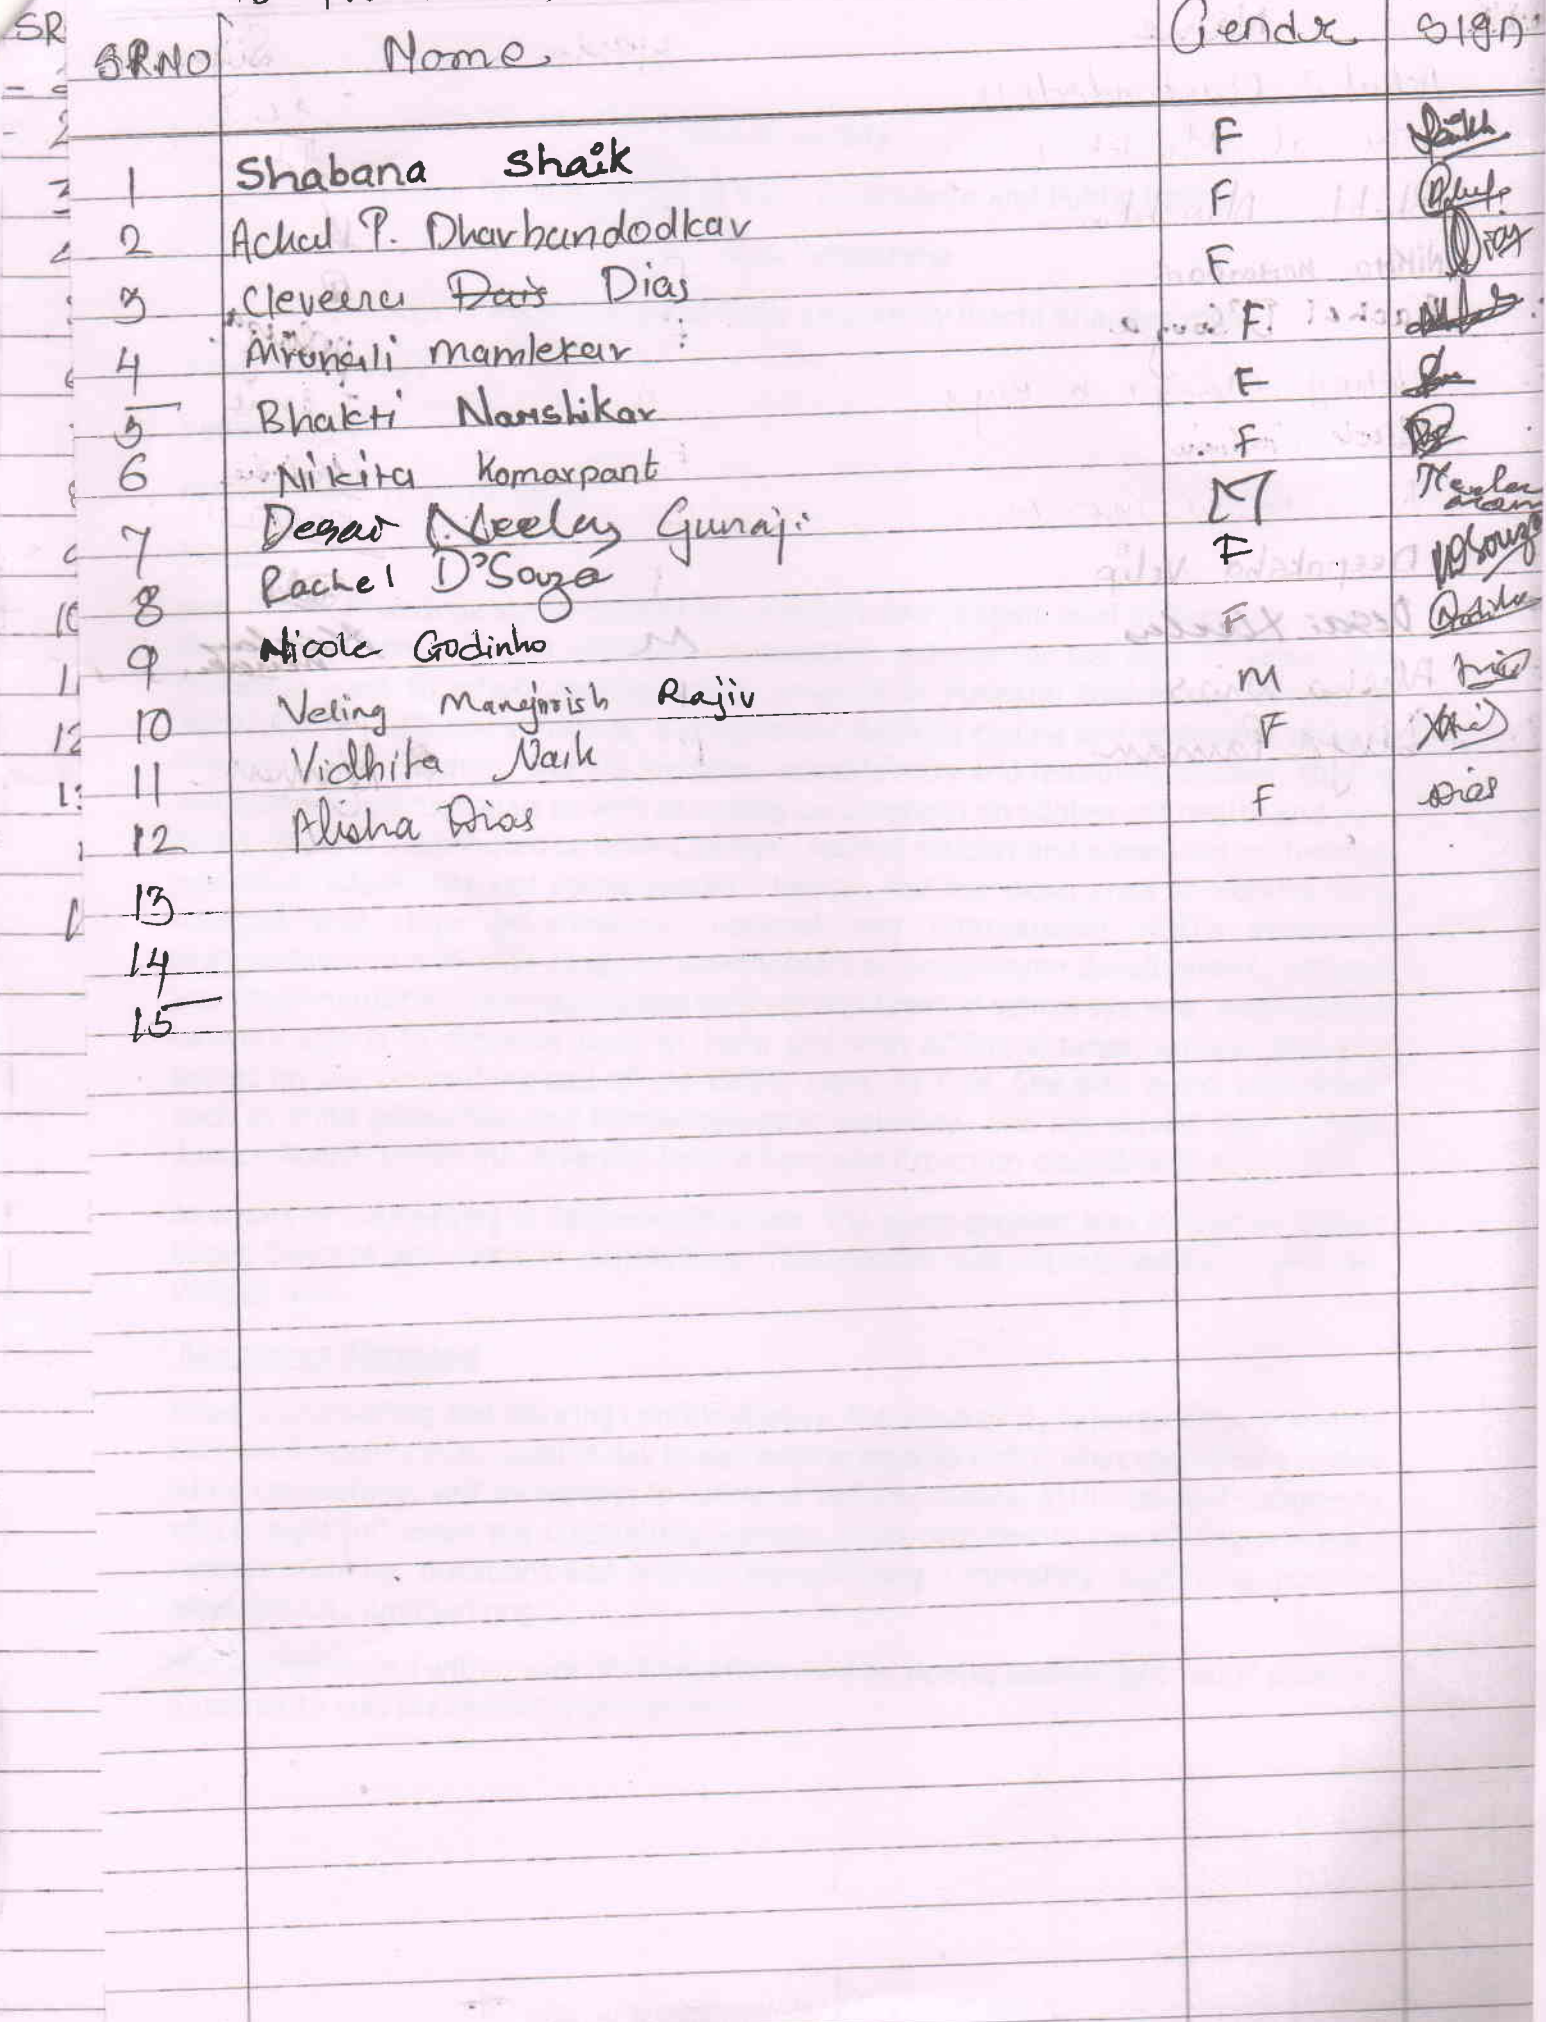 SR NO Name Gender Sign
1 Shabana Shaik F
2 Achal P. Dharbandodkar F
3 Cleveena Dais Dias F Dias
4 Mrunali Mamlekar F
5 Bhakti Narshikar F
6 Nikita Komarpant F
7 Desai Neelas Gunaji M
8 Rachel D'Souza F DSouza
9 Nicole Godinho F Godinho
10 Veling Manguirish Rajiv M
11 Vidhita Naik F
12 Alisha Dias F Dias
13
14
15